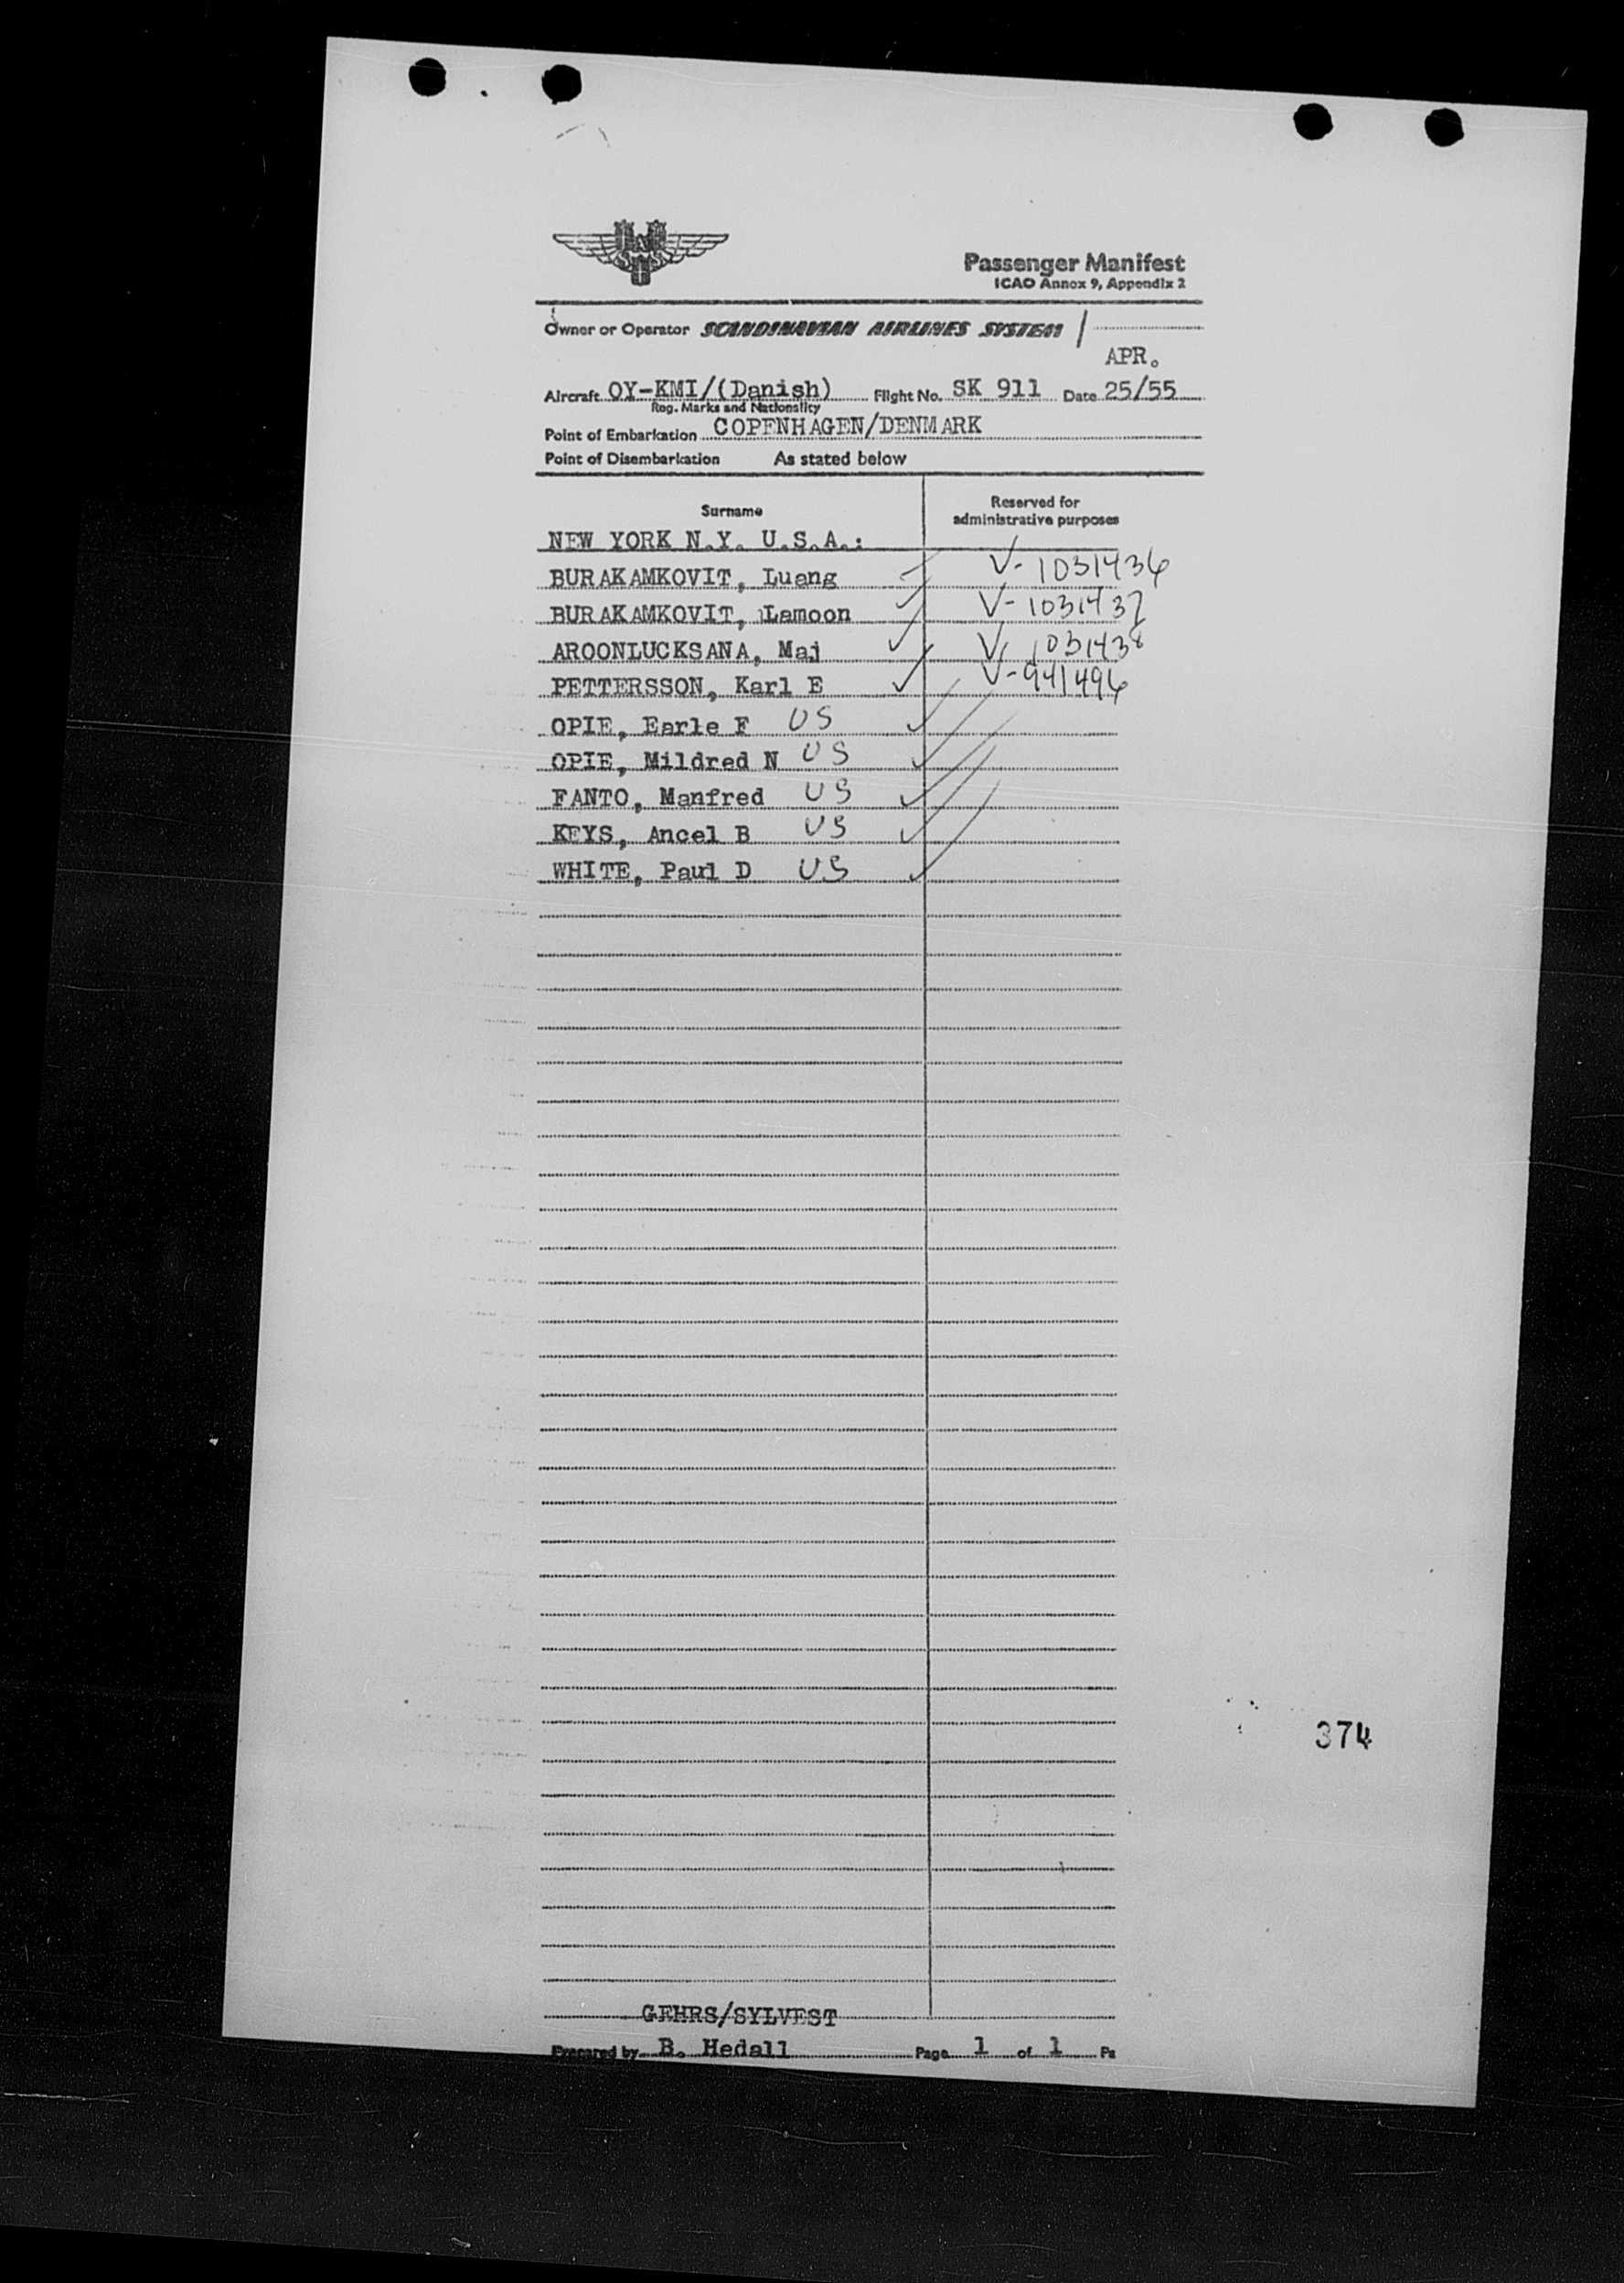 Passenger Manifest
ICAO Annex 9, Appendix 2
Owner or Operator SCANDINAVIAN AIRLINES SYSTEM /
APR.
Aircraft OY-KMI/(Danish) Flight No. SK 911 Date 25/55
Reg. Marks and Nationality
Point of Embarkation COPENHAGEN/DENMARK
Point of Disembarkation As stated below
Surname Reserved for administrative purposes
NEW YORK N.Y. U.S.A.:
BURAKAMKOVIT, Luang V-1031436
BURAKAMKOVIT, Lamoon V-1031437
AROONLUCKSANA, Maj V 1031438
PETTERSSON, Karl E V-941496
OPIE, Earle F US
OPIE, Mildred N US
FANTO, Manfred US
KEYS, Ancel B US
WHITE, Paul D US
374
GEHRS/SYLVEST
Prepared by B. Hedall Page 1 of 1 Pa